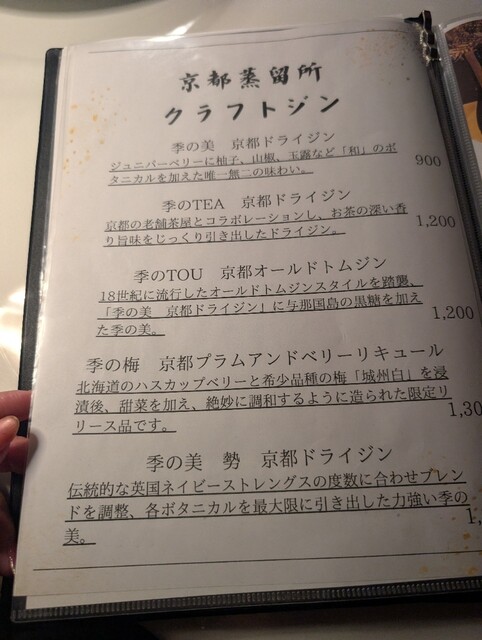 京都蒸留所
クラフトジン
季の美　京都ドライジン
ジュニパーベリーに柚子、山椒、玉露など「和」のボ
タニカルを加えた唯一無二の味わい。
900
季のTEA　京都ドライジン
京都の老舗茶屋とコラボレーションし、お茶の深い香
り旨味をじっくり引き出したドライジン。
1,200
季のTOU　京都オールドトムジン
18世紀に流行したオールドトムジンスタイルを踏襲、
「季の美　京都ドライジン」に与那国島の黒糖を加え
た季の美。
1,200
季の梅　京都プラムアンドベリーリキュール
北海道のハスカップベリーと希少品種の梅「城州白」を浸
漬後、甜菜を加え、絶妙に調和するように造られた限定リ
リース品です。
1,30
季の美　勢　京都ドライジン
伝統的な英国ネイビーストレングスの度数に合わせブレン
ドを調整、各ボタニカルを最大限に引き出した力強い季の
美。
1,